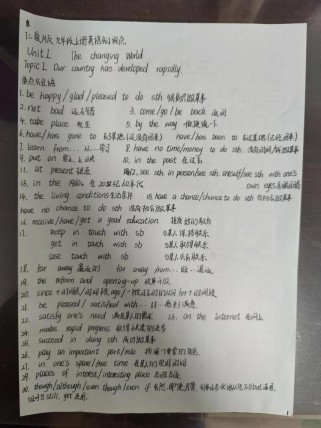 仁爱版九年级上册英语知识点
Unit 1 The changing World
Topic 1 Our country has developed rapidly
重点短语
1. be happy/glad/pleased to do sth 很高兴做某事
2. not bad 3. come/go/be back 返回
4. take place 发生 5. by the way 顺便说一下
6. have/has gone to 去了某地(还没回来) have/has been to 去过某地(已经回来)
7. learn from... 从...学习 8. have no time/money to do sth
9. put on 10. in the past 在过去
11. at present 12. see sth in person/see sth oneself/see sth with one's own eyes
13. in the 1960s 在20世纪60年代
14. the living conditions 15. have a chance/chance to do sth
have no chance to do sth 没有机会做某事
16. receive/have/get a good education 接受良好的教育
17. keep in touch with sb 与某人保持联系
get in touch with sb 与某人取得联系
lose touch with sb 与某人失去联系
18. far away 遥远的 far away from...
19. the reform and opening-up 改革开放
20. since
21. be pleased/satisfied with... 对...感到满意
22. satisfy one's need 满足某人的需求 23. on the internet 在网上
24. make rapid progress 取得快速的进步
25. succeed in doing sth 成功做某事
26. play an important part/role 扮演重要的角色
27. in one's spare/free time 在某人的空闲时间
29. places of interest/interesting place 名胜古迹
30. though/although/even though/even if
still, yet